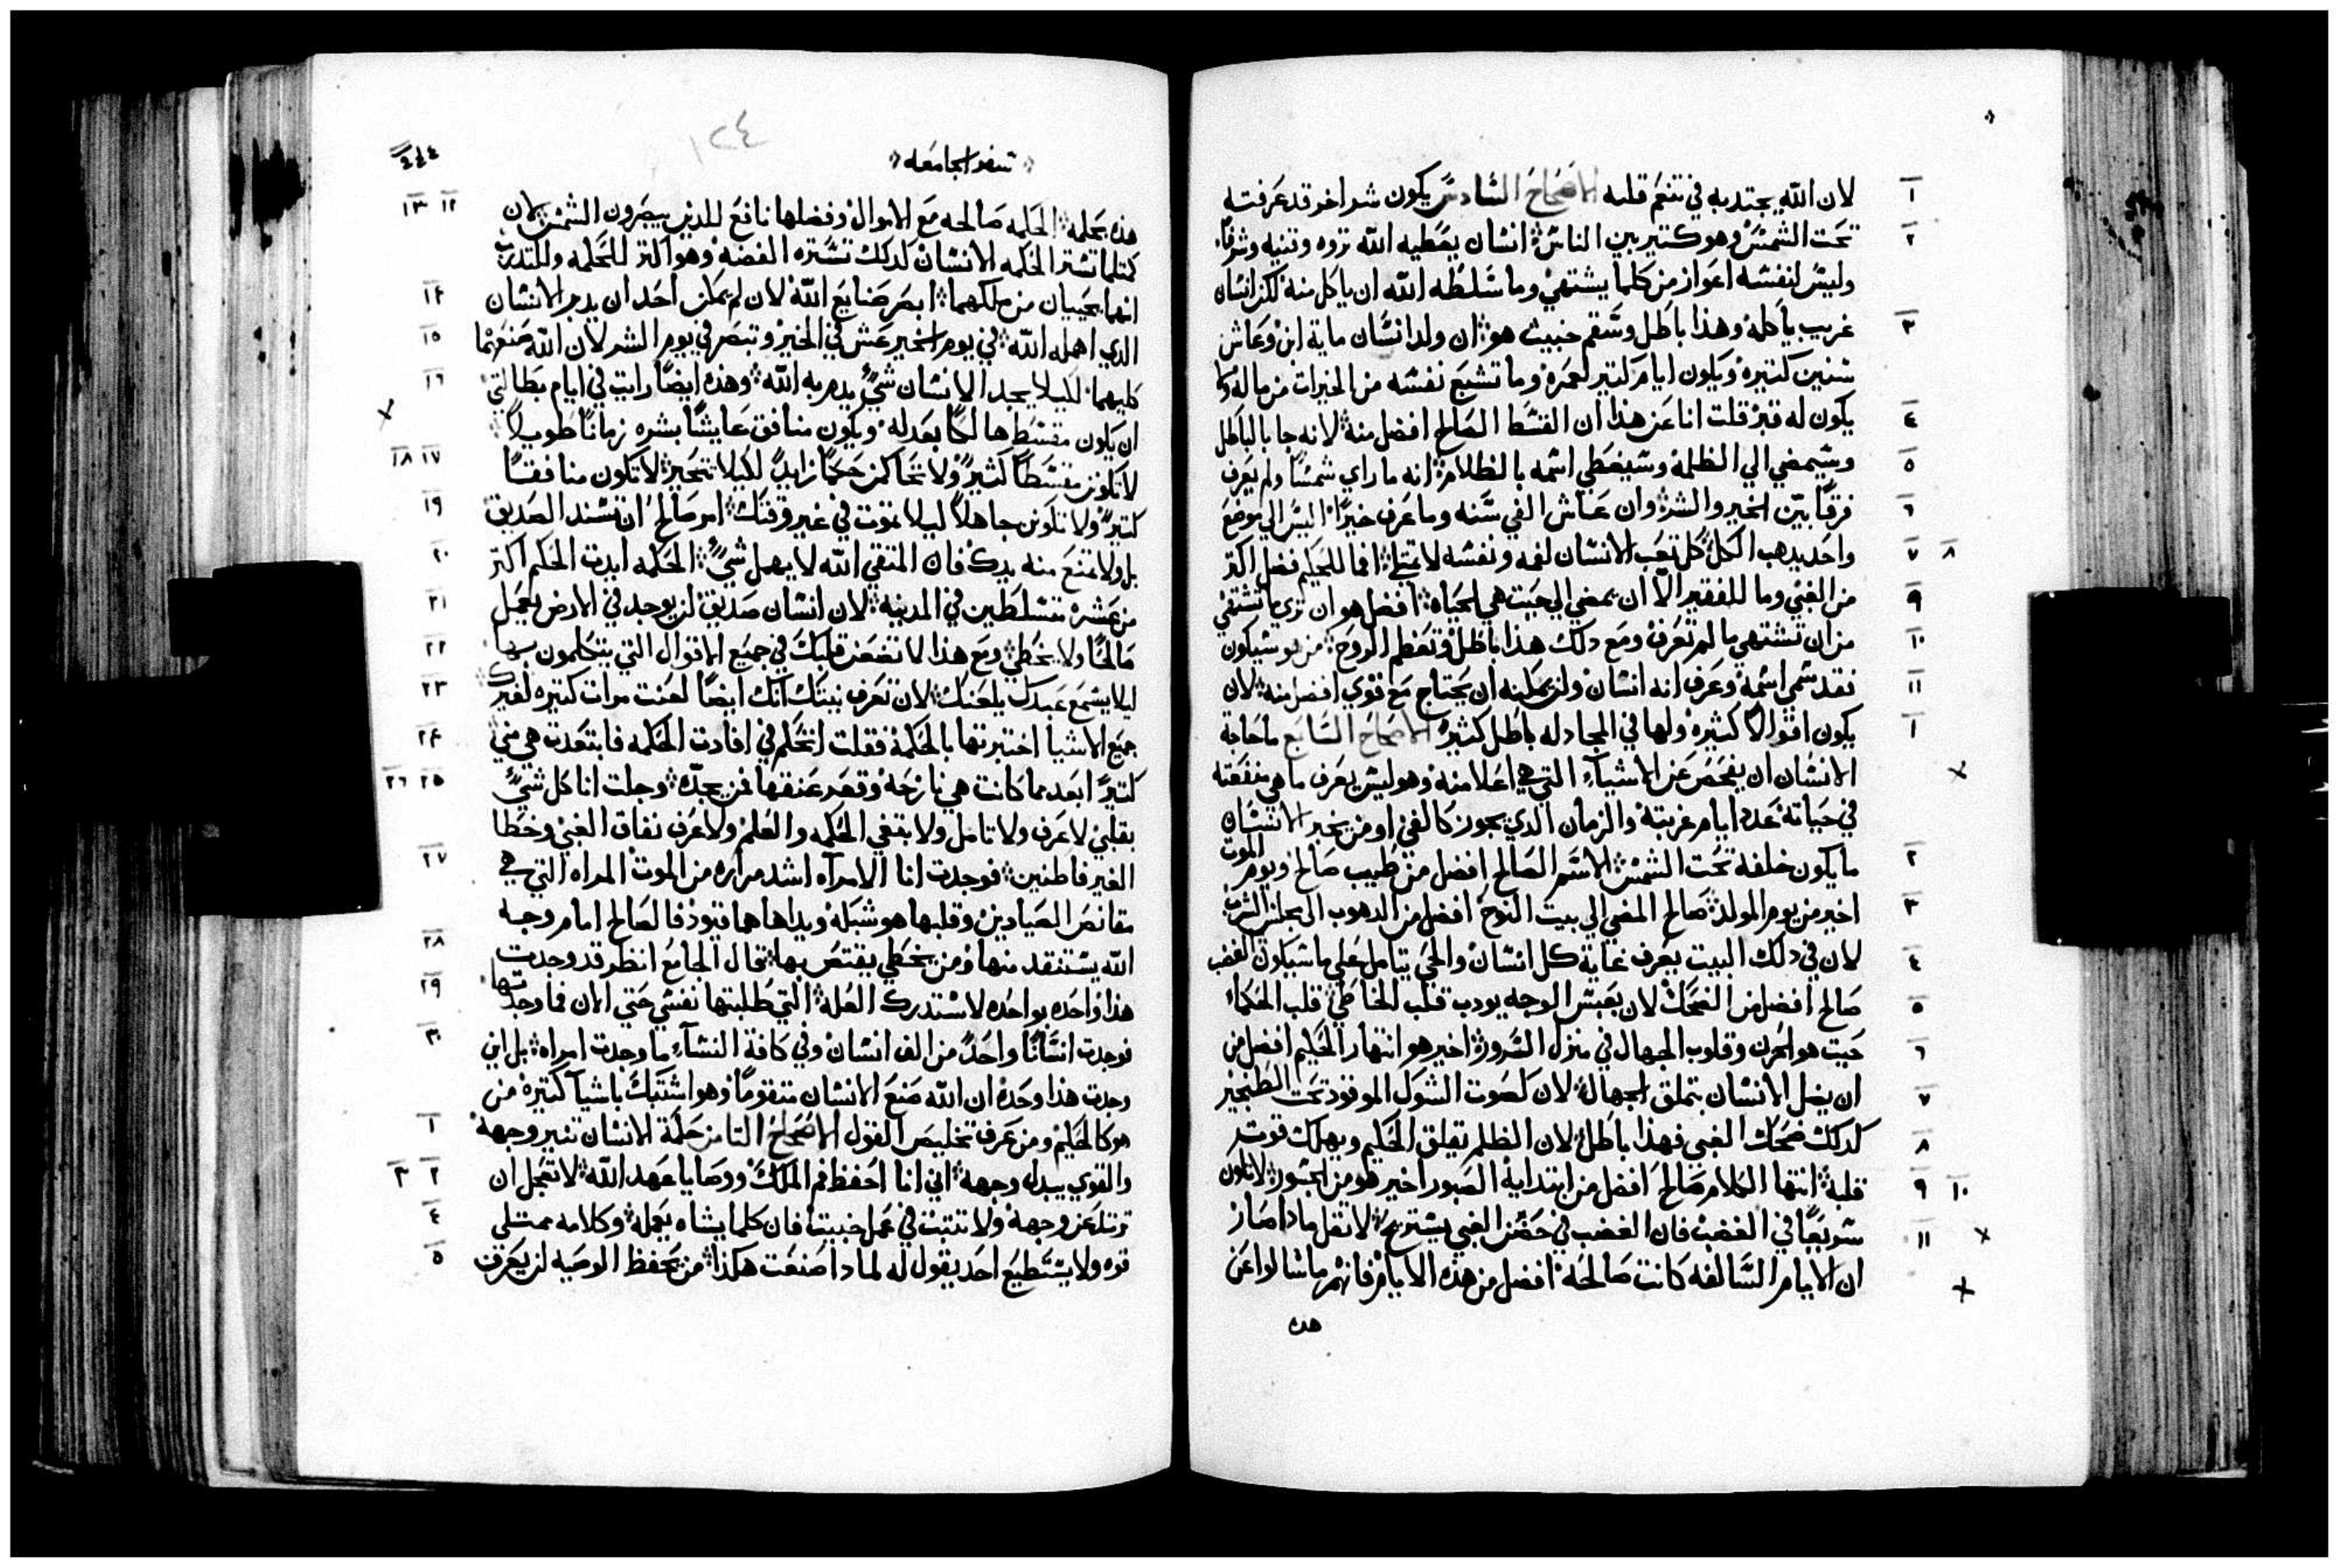 لان الله يجتدبه في تنعم قلبه الاصحاح السادس يكون شر اخر قد عرفته
تحت الشمس وهو كتير بين الناس انسان يعطيه الله تروه وقنيه وشرفا
وليس لنفسه اعواز من كلما يشتهي وما سلطه الله ان ياكل منه لكن انسان
غريب ياكله وهذا باطل وسقم خبيث هو ان ولد انسان ماية ابن وعاش
سنين كتيره ويكون ايام كتير لعمره وما تشبع نفسه من الخيرات من ماله ولا
يكون له قبر قلت انا عن هذا ان القسط الصالح افضل منه لانه جا بالباطل
وسيمضي الي الظلمه وسيغطي اسمه بالظلام انه ما راي شمسا ولم يعرف
فرقا بين الخير والشر وان عاش الفي سنه وما عرف خيرا اليس الي موضع
واحد يدهب الكل كل تعب الانسان لفمه ونفسه لا تمتلي افما للحكيم فضل اكتر
من الغبي وما للفقير الا ان يمضي الي حيت هي الحياه افضل هو ان تري ما تشتهي
من ان تشتهي ما لم تعرف ومع دلك هذا باطل وتعظم الروح من هو سيكون
فقد سمي اسمه وعرف انه انسان ولن يمكنه ان يحتاج مع قوي افضل منه لان
يكون اقوالا كثيره ولها في المجادله باطل كثير الاصحاح السابع ما حاجة
الانسان ان يفحص عن الاشياء التي هي اعلا منه وهو ليس يعرف ما هي منفعته
في حياته عدد ايام غربته والزمان الدي يجوز كالفي او من يخبر الانسان
ما يكون خلفه تحت الشمس الاسم الصالح افضل من طيب صالح ويوم الموت
اخير من يوم المولد صالح المضي الي بيت النوح افضل من الدهوب الى مجلس الشرب
لان في دلك البيت يعرف غاية كل انسان والحي يتامل علي ما سيكون الغضب
صالح افضل من الضحك لان بعبس الوجه يودب قلب الخاطي قلب الحكماء
حيت هو الحزن وقلوب الجهال في منزل السرور اخير هو انتهار الحكيم افضل من
ان يضل الانسان بتملق الجهال لان كصوت الشوك الموقود تحت الطنجير
كدلك ضحك الغبي فهذا باطل لان الظلم يقلق الحكيم ويهلك قوت
قلبه انتها الكلام صالح افضل من ابتدايه الصبور اخير هو من الجسور لا تكون
سريعا في الغضب فان الغضب في حضن الغبي يستريح لا تقل مادا صار
ان الايام السالفه كانت صالحه افضل من هذه الايام فانهم ما سالوا عن
هده
سفر الجامعه
١٢٤
هذه بحكمه الحكمه صالحه مع الاموال وفضلها نافع للدين يبصرون الشمس لان
كتلما تستر الحكمه الانسان لدلك تستره الفضه وهو اكتر للحكمه وللتدريب
انهما يحييان من ملكهما ابصر صنايع الله لان لم يمكن احد ان يدبر الانسان
الدي اهمله الله في يوم الخير عش في الخير وتبصر في يوم الشر لان الله صنعهما
كليهما لكيلا يجد الانسان شي يدمر به الله وهذه ايضا رايت في ايام بطالتي
ان يكون مقسط هالكا بعدله ويكون منافق عايشا بشره زمانا طويلا
لا تكونن مقسطا كثير ولا تحاكمن حكما زايدا لكيلا تتحير لا تكون منافقا
كتير ولا تكونن جاهلا ليلا تموت في غير وقتك امر صالح ان تسند الصديق
بل ولا تمنع منه يدك فان المتقي الله لا يهمل شي الحكمه ايدت الحكيم اكتر
من عشره متسلطين في المدينه لان انسان صديق لن يوجد في الارض يعمل
صالحا ولا يخطي ومع هذا لا تضعن قلبك في جميع الاقوال التي يتكلمون بها
ليلا يسمع عبدك يلعنك لان تعرف نيتك انك ايضا لعنت مرات كتيره لغيرك
جميع الاشيا اختبرتها بالحكمه فقلت اتحكم في افادت الحكمه فابتعدت هي مني
كتيرا ابعد مما كانت هي نازحه وقعر عمقها فمن يجده وجلت انا كل شي
بقلبي لاعرف ولاتامل ولابتغي الحكمه والعلم ولاعرف نفاق الغبي وخطا
الغير فاطنين فوجدت انا الامراه اشد مراره من الموت المراه التي هي
مقانص الصيادين وقلبها هو شبكه ويداها هما قيود فالصالح امام وجه
الله يستنقد منها ومن يخطي يقتنص بها قال الجامع انظر قد وجدت
هذا واحده بواحده لاستدرك العله التي طلبتها نفسي حتي الان فما وجدتها
فوجدت انسانا واحد من الف انسان وفي كافة النساء ما وجدت امراه بل اني
وجدت هذا وحده ان الله صنع الانسان متقوما وهو اشتبك باشيا كتيره من
هو كالحكيم ومن عرف تخليص القول الاصحاح التامن حكمة الانسان تنير وجهه
والقوي يبدل وجهه اني انا احفظ فم الملك ووصايا عهد الله لا تعجل ان
ترتد عن وجهه ولا تتبت في عمل خبيث فان كلما يشاه يعمله وكلامه ممتلي
قوه ولا يستطيع احد يقول له لمادا صنعت هكذا من يحفظ الوصيه لن يعرف